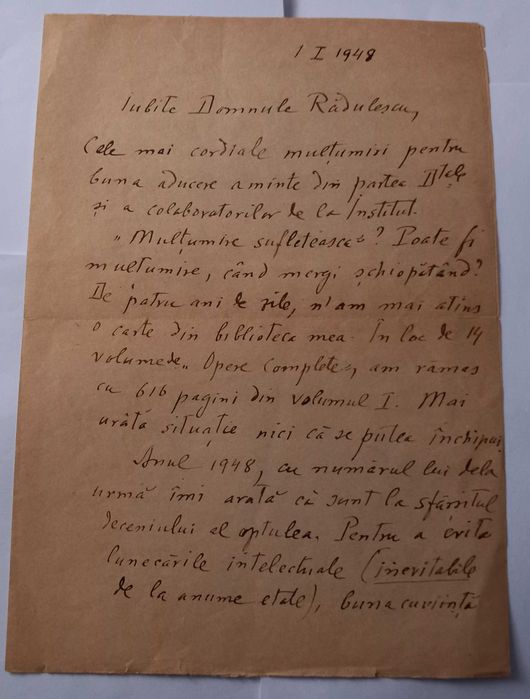 1 I 1948
Iubite Domnule Rădulescu,
Cele mai cordiale mulțumiri pentru
buna aducere aminte din partea Dtale
și a colaboratorilor de la Institut.
„Mulțumire sufletească"? Poate fi
mulțumire, când mergi șchiopătând?
De patru ani de zile, n'am mai atins
o carte din biblioteca mea. În loc de 14
volume de „Opere complete", am rămas
cu 616 pagini din volumul I. Mai
urâtă situație nici că se putea închipui.
Anul 1948, cu numărul lui dela
urmă îmi arată că sunt la sfârșitul
deceniului al optulea. Pentru a evita
lunecările intelectuale (inevitabile
de la anume etate), buna cuviință